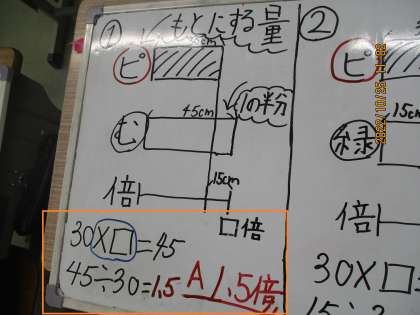 ① もとにする量
ピ
45cm
1の粉
む
15cm
倍
□倍
30×□=45
45÷30=1.5 A 1.5倍
②
ピ
15cm
緑
倍
30×□=
2022/10/25